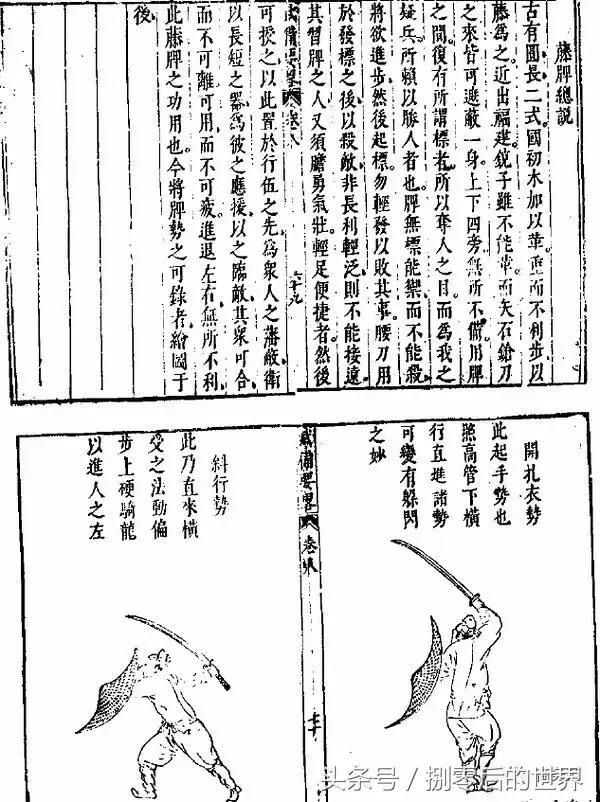 藤牌總說
古有圓長二式國初木加以革重而不利步以
藤為之近出福建銃子雖不能當而矢石鎗刀
之來皆可遮蔽一身上下四旁無所不備用牌
之間復有所謂標者所以奪人之目而為我之
疑兵所賴以勝人者也牌無標能禦而不能殺
將欲進步然後起標勿輕發以敗其事腰刀用
於發標之後以殺敵非長利輕泛則不能接遠
其習牌之人又須膽勇氣壯輕足便捷者然後
武備要畧 卷八 六十九
可授之以此置於行伍之先為眾人之藩蔽衛
以長短之器為彼之應援以之臨敵其眾可合
而不可離可用而不可疲進退左右無所不利
此藤牌之功用也今將牌勢之可錄者繪圖于
後
開扎衣勢
此起手勢也
照高管下橫
行直進諸勢
可變有躲閃
之妙
武備要畧 卷八 七十
斜行勢
此乃直來橫
受之法動偏
步上硬騎龍
以進人之左
头条号 / 捌零后的世界